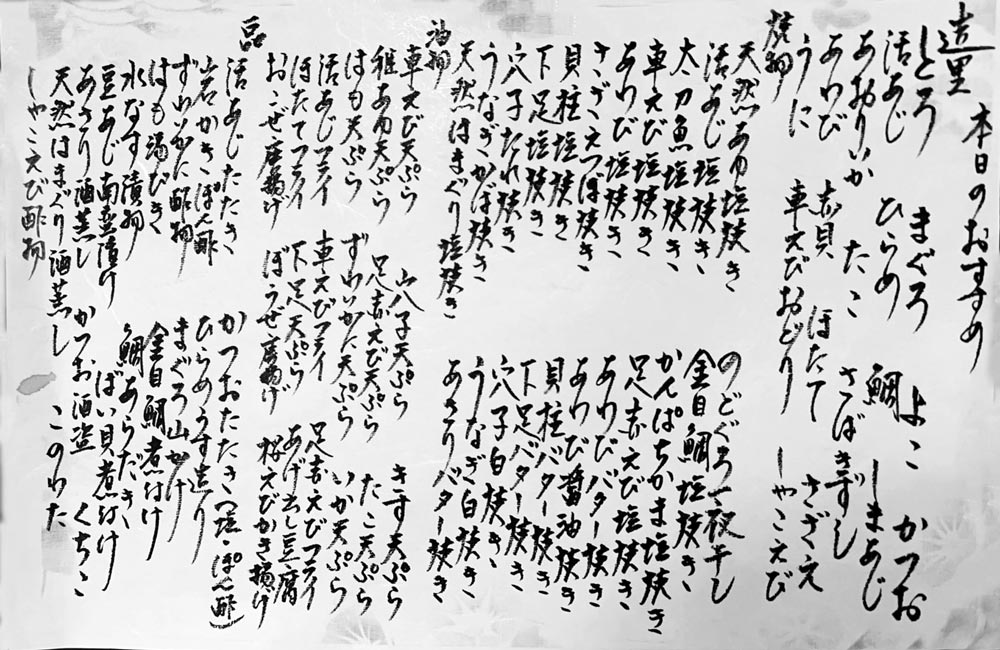 本日のおすすめ
造里
しとろ まぐろ よこ かつお
活あじ ひらめ 鯛 しまあじ
あおりいか たこ さばきずし
あわび 赤貝 ほたて さざえ
うに 車えびおどり しゃこえび
焼物
天然あゆ塩焼き のどぐろ一夜干し
活あじ塩焼き 金目鯛塩焼き
太刀魚塩焼き かんぱちかま塩焼き
車えび塩焼き 足赤えび塩焼き
あわび塩焼き あわびバター焼き
さざえつぼ焼き あわび醤油焼き
貝柱塩焼き 貝柱バター焼き
下足塩焼き 下足バター焼き
穴子たれ焼き 穴子白焼き
うなぎかば焼き うなぎ白焼き
天然はまぐり塩焼き あさりバター焼き
油物
車えび天ぷら 穴子天ぷら きす天ぷら
稚あゆ天ぷら 足赤えび天ぷら たこ天ぷら
はも天ぷら ずわいかに天ぷら いか天ぷら
活あじフライ 車えびフライ 足赤えびフライ
ほたてフライ 下足天ぷら あげ出し豆腐
おこぜ唐揚げ ぼうぜ唐揚げ 桜えびかき揚げ
一品
活あじたたき かつおたたき(塩・ぽん酢)
岩かきぽん酢 ひらめうす造り
ずわいかに酢物 まぐろ山かけ
はも湯びき 金目鯛煮付け
水なす漬物 鯛あらだき
豆あじ南蛮漬け ばい貝煮付け
あさり酒蒸し かつお酒盗 くちこ
天然はまぐり酒蒸し このわた
しゃこえび酢物